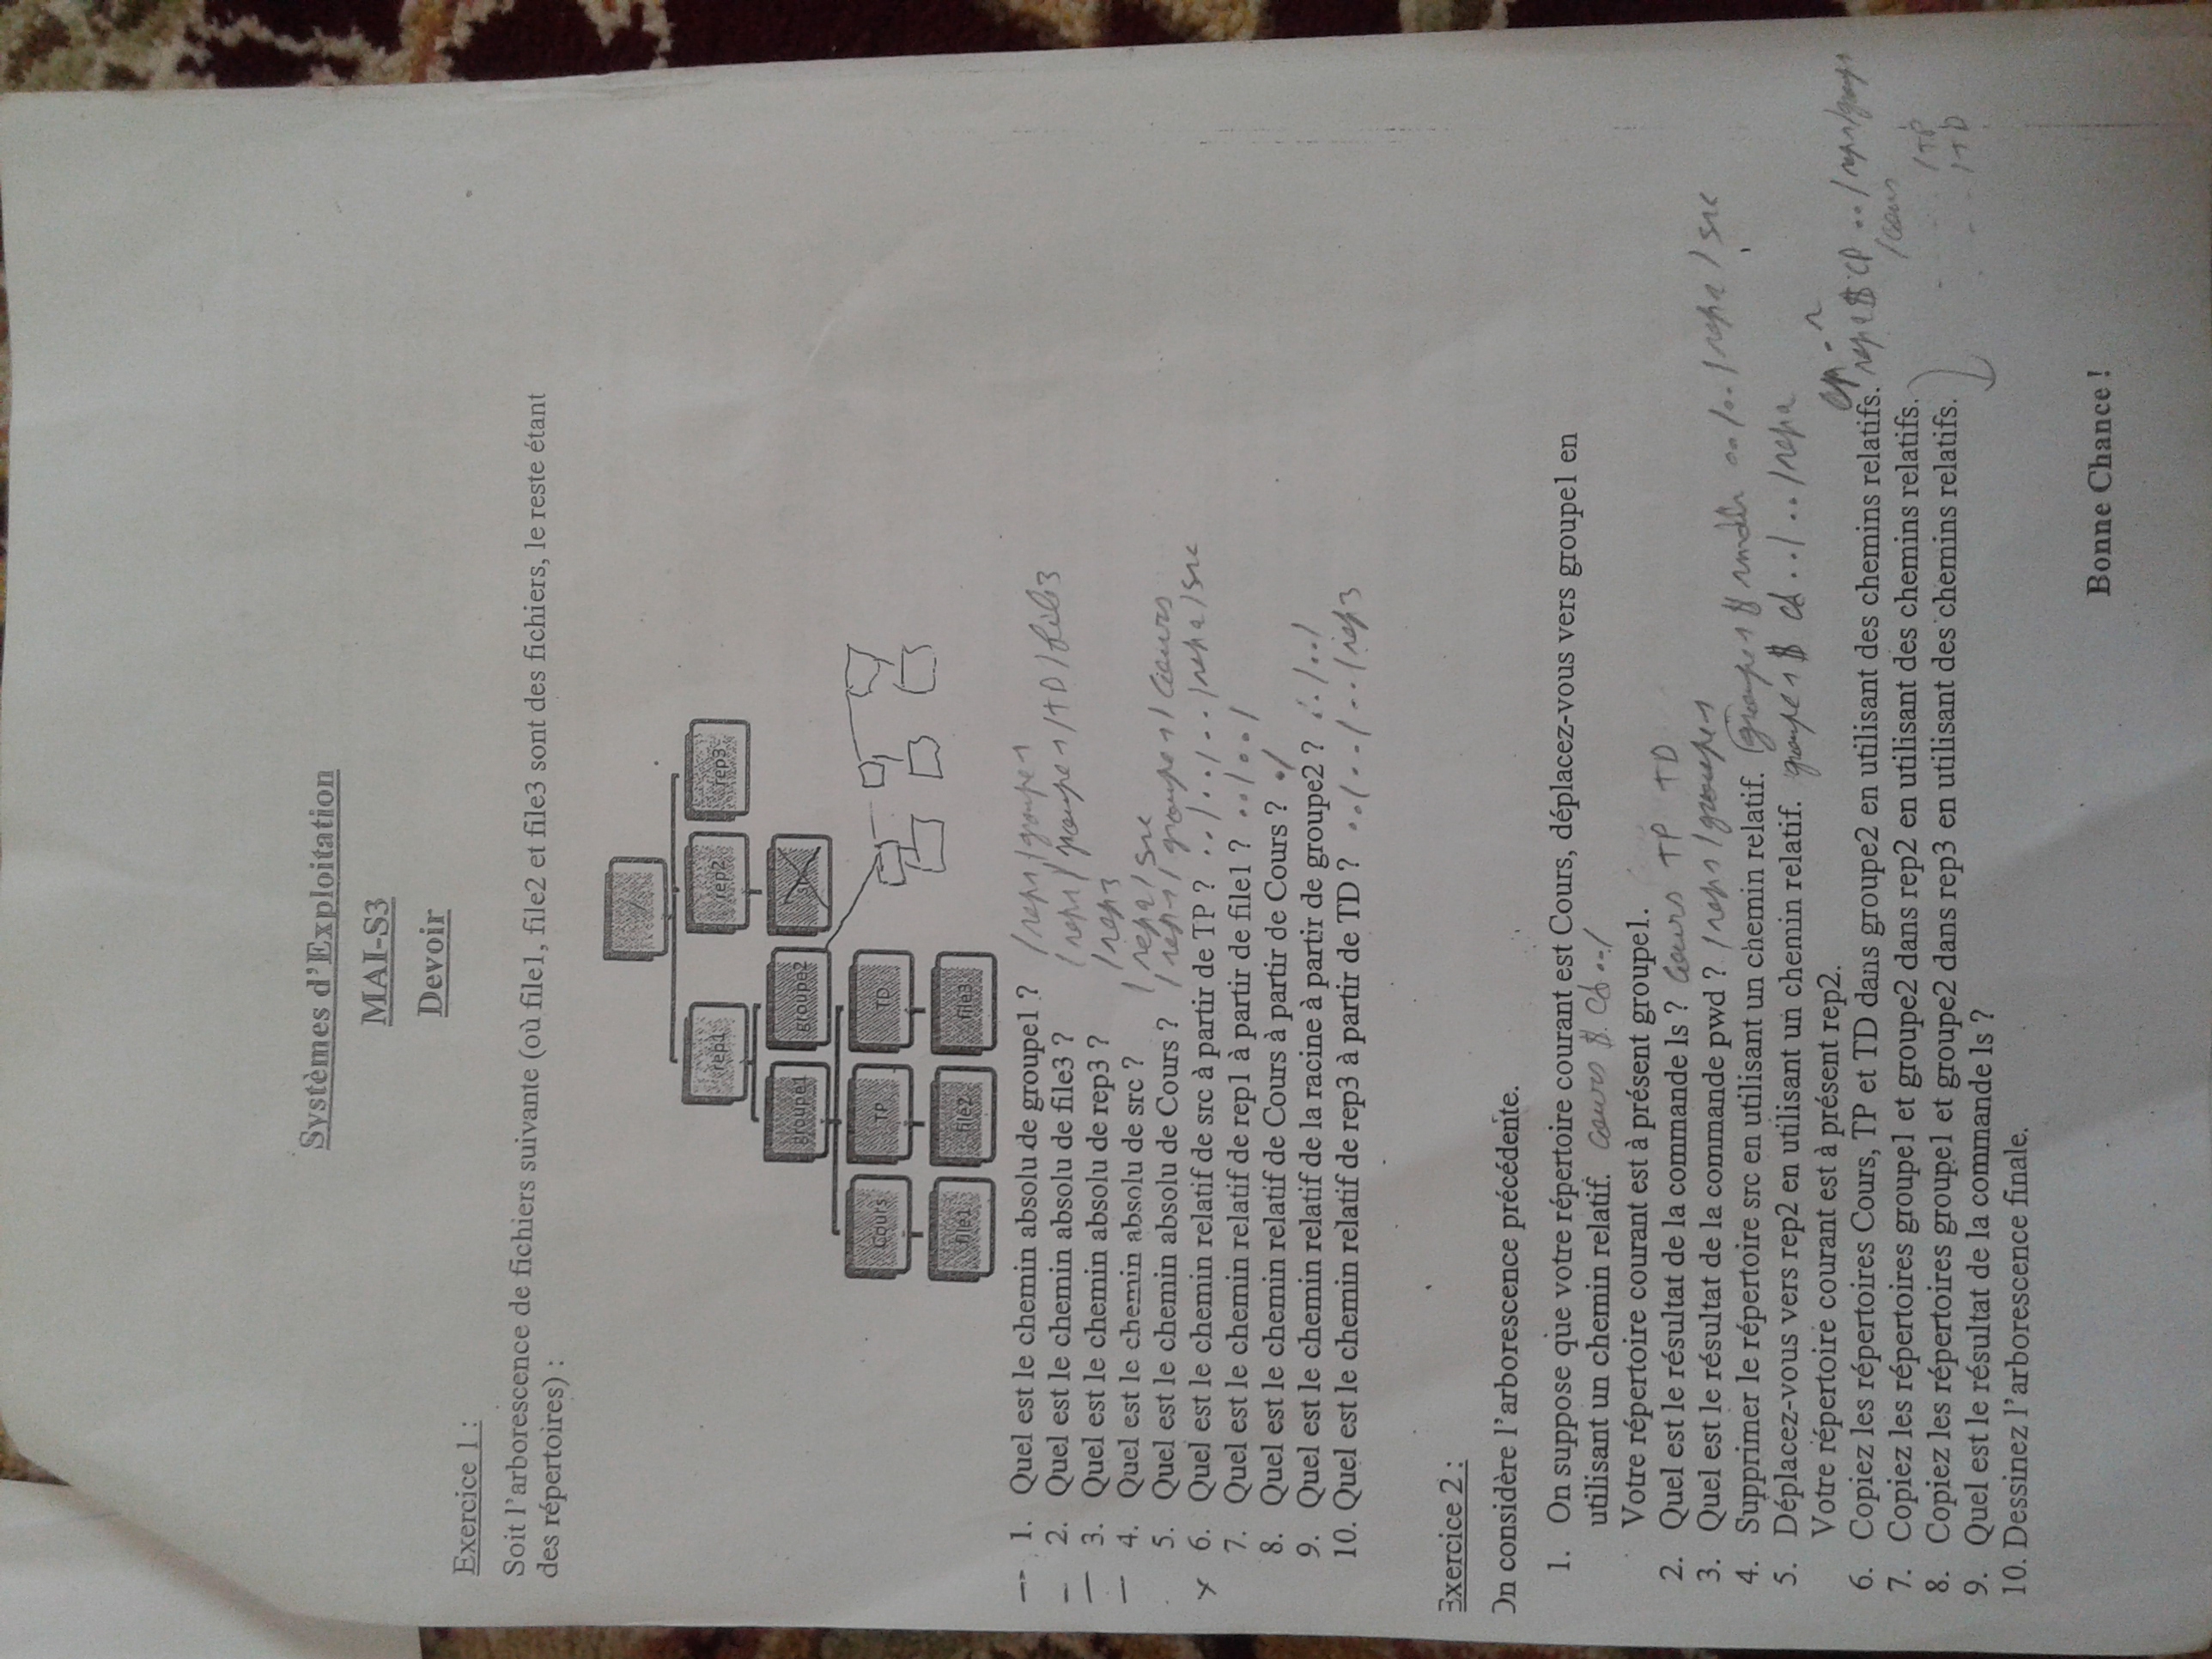 Systèmes d'Exploitation
MAI-S3
Devoir
Exercice 1 :
Soit l'arborescence de fichiers suivante (où file1, file2 et file3 sont des fichiers, le reste étant
des répertoires) :
/
rep1 rep2 rep3
groupe1 groupe2 src
Cours TP TD
file1 file2 file3
1. Quel est le chemin absolu de groupe1 ? /rep1/groupe1
2. Quel est le chemin absolu de file3 ? /rep1/groupe1/TD/file3
3. Quel est le chemin absolu de rep3 ? /rep3
4. Quel est le chemin absolu de src ? /rep2/src
5. Quel est le chemin absolu de Cours ? /rep1/groupe1/Cours
6. Quel est le chemin relatif de src à partir de TP ? ../../../rep2/src
7. Quel est le chemin relatif de rep1 à partir de file1 ? ../../
8. Quel est le chemin relatif de Cours à partir de Cours ? ./
9. Quel est le chemin relatif de la racine à partir de groupe2 ? ../../
10. Quel est le chemin relatif de rep3 à partir de TD ? ../../../rep3
Exercice 2 :
On considère l'arborescence précédente.
1. On suppose que votre répertoire courant est Cours, déplacez-vous vers groupe1 en
utilisant un chemin relatif. Cours $ cd ../
Votre répertoire courant est à présent groupe1.
2. Quel est le résultat de la commande ls ? Cours TP TD
3. Quel est le résultat de la commande pwd ? /rep1/groupe1
4. Supprimer le répertoire src en utilisant un chemin relatif. groupe1 $ rmdir ../../rep2/src
5. Déplacez-vous vers rep2 en utilisant un chemin relatif. groupe1 $ cd ../../rep2
Votre répertoire courant est à présent rep2.
cp -r
6. Copiez les répertoires Cours, TP et TD dans groupe2 en utilisant des chemins relatifs. rep2 $ cp ../rep1/groupe1
/cours
7. Copiez les répertoires groupe1 et groupe2 dans rep2 en utilisant des chemins relatifs.
/TP
8. Copiez les répertoires groupe1 et groupe2 dans rep3 en utilisant des chemins relatifs.
/TD
9. Quel est le résultat de la commande ls ?
10. Dessinez l'arborescence finale.
Bonne Chance !